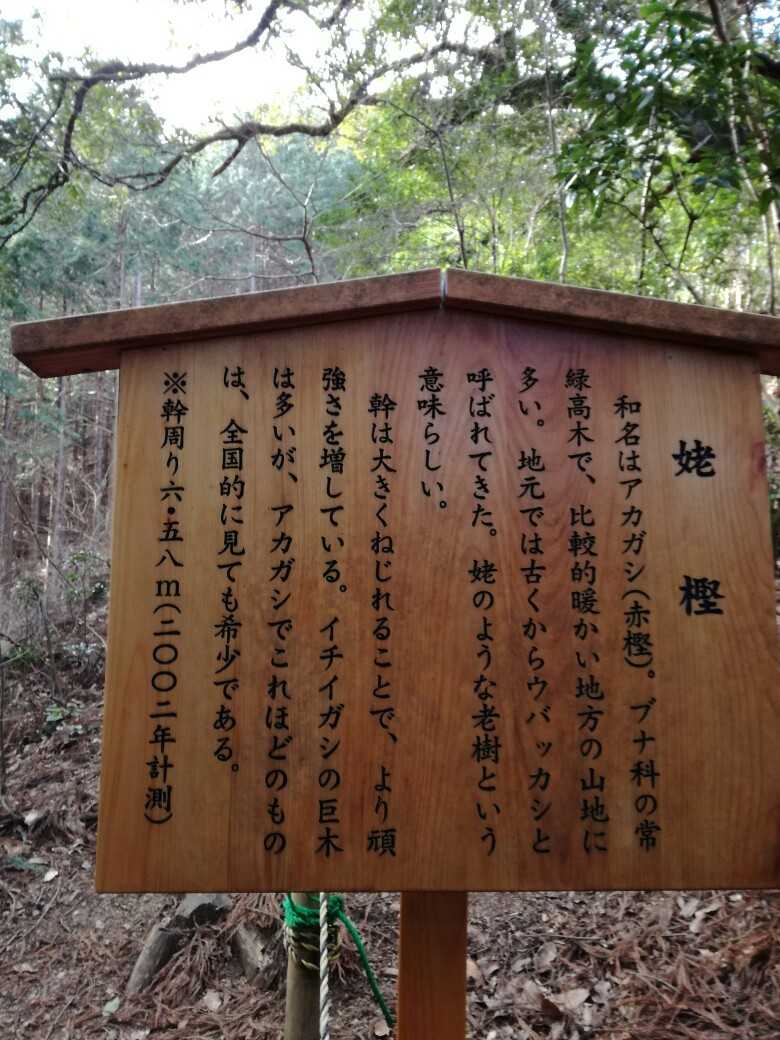 姥樫
和名はアカガシ(赤樫)。ブナ科の常
緑高木で、比較的暖かい地方の山地に
多い。地元では古くからウバッカシと
呼ばれてきた。姥のような老樹という
意味らしい。
幹は大きくねじれることで、より頑
強さを増している。イチイガシの巨木
は多いが、アカガシでこれほどのもの
は、全国的に見ても希少である。
※幹周り六・五八m(二〇〇二年計測)